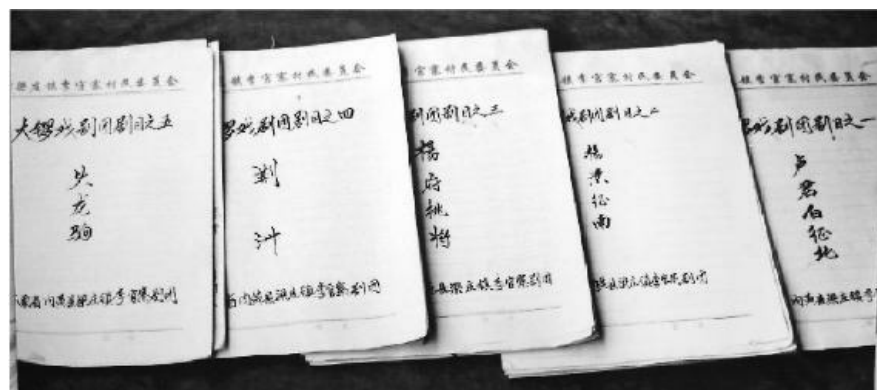 梁庄镇李官寨村民委员会
大锣戏剧团剧目之五
失龙驹
南省内黄县梁庄镇李官寨剧团
镇李官寨村民委员会
罗戏剧团剧目之四
内黄县梁庄镇李官寨剧团
官寨村民委员会
剧团剧目之三
杨府挑将
县梁庄镇李官寨剧团
镇李官寨村民委员会
戏剧团剧目之二
杨征南
县梁庄镇李官寨剧团
镇李官寨村民委员会
罗戏剧团剧目之一
卢君征北
内黄县梁庄镇李